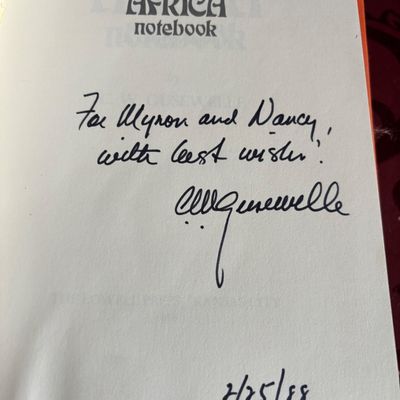 AFRICA
notebook
For Myron and Nancy,
with best wishes!
CWGusewelle
2/25/88